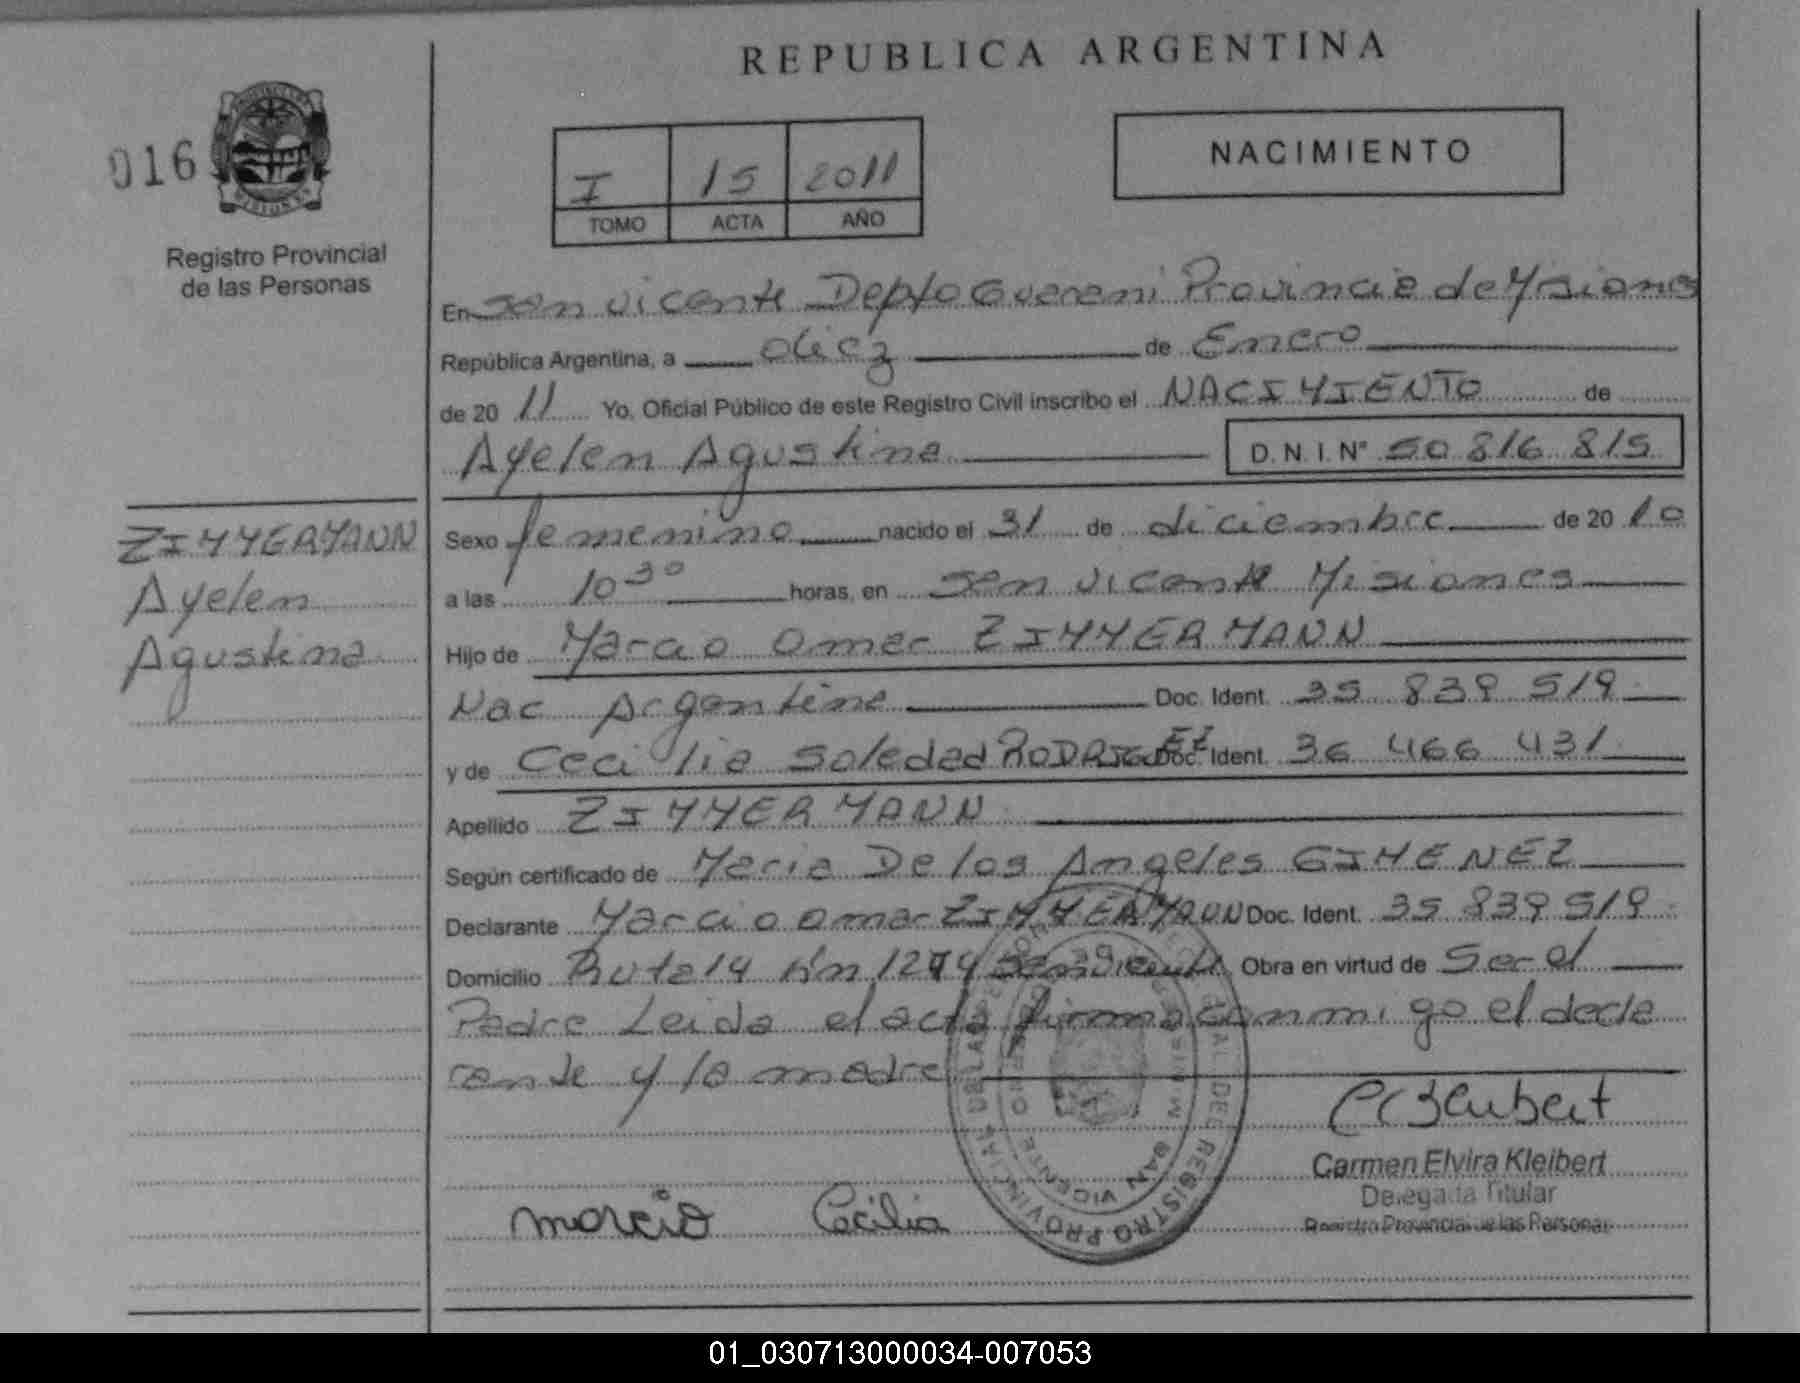 REPUBLICA ARGENTINA
016
NACIMIENTO
I 15 2011
TOMO ACTA AÑO
Registro Provincial
de las Personas
En San Vicente Depto Guarani Provincia de Misiones
República Argentina, a diez de Enero
de 20 11 Yo, Oficial Público de este Registro Civil inscribo el NACIMIENTO de
Ayelen Agustina D.N.I. Nº 50 816 815
ZIMMERMANN
Ayelen
Agustina
Sexo femenino nacido el 31 de diciembre de 20 10
a las 10 30 horas, en San Vicente Misiones
Hijo de Marcio Omar ZIMMERMANN
Nac Argentina Doc. Ident. 35 839 519
y de Cecilia Soledad RODRIGUEZ Doc. Ident. 36 466 431
Apellido ZIMMERMANN
Según certificado de Maria De los Angeles GIMENEZ
Declarante Marcio Omar ZIMMERMANN Doc. Ident. 35 839 519
Domicilio Ruta 14 km 1274 San Vicente Obra en virtud de Ser el
Padre Leida el acta firma conmigo el decla
rante y la madre
Carmen Elvira Kleibert
Delegada Titular
Registro Provincial de las Personas
marcio Cecilia
REGISTRO PROVINCIAL DE LAS PERSONAS
SAN VICENTE
MISIONES
01_030713000034-007053